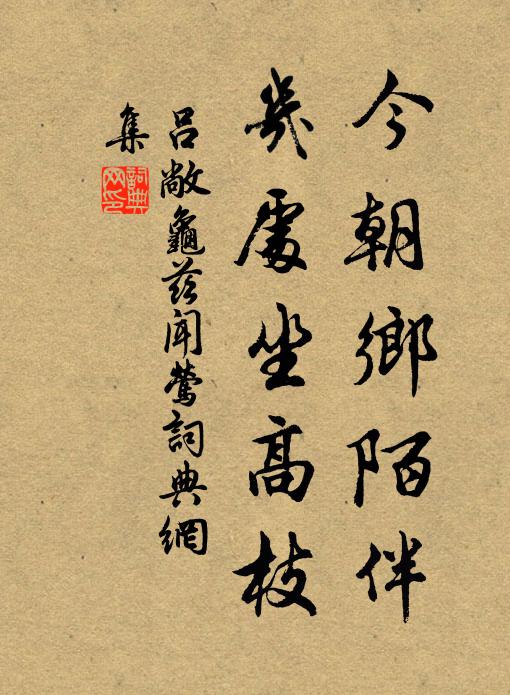 今朝鄉陌伴
幾處坐高枝
呂敞龜茲聞鶯詞典網
集
詞典
网印